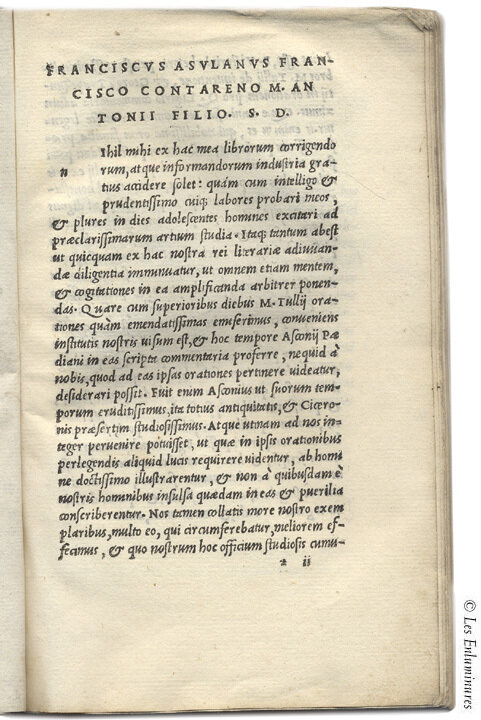 FRANCISCVS ASVLANVS FRAN-
CISCO CONTARENO M. AN
TONII FILIO. S. D.
n Ihil mihi ex hac mea librorum corrigendo
rum, atque informandorum industria gra-
tius accidere solet: quàm cum intelligo &
prudentissimo cuiq; labores probari meos,
& plures in dies adolescentes homines excitari ad
præclarissimarum artium studia. Itaq; tantum abest
ut quicquam ex hac nostra rei literariæ adiuuan-
dæ diligentia imminuatur, ut omnem etiam mentem,
& cogitationes in ea amplificanda arbitrer ponen-
das. Quare cum superioribus diebus M. Tullij ora-
tiones quàm emendatissimas emiserimus, conueniens
institutis nostris uisum est, & hoc tempore Asconij Pæ
diani in eas scripta commentaria proferre, ne quid à
nobis, quod ad eas ipsas orationes pertinere uideatur,
desiderari possit. Fuit enim Asconius ut suorum tem-
porum eruditissimus, ita totius antiquitatis, & Cicero-
nis præsertim studiosissimus. Atque utinam ad nos in-
teger peruenire potuisset, ut quæ in ipsis orationibus
perlegendis aliquid lucis requirere uidentur, ab homi
ne doctissimo illustrarentur, & non à quibusdam è
nostris hominibus insulsa quædam in eas & puerilia
conscriberentur. Nos tamen collatis more nostro exem
plaribus, multo eo, qui circumferebatur, meliorem ef-
fecimus, & quo nostrum hoc officium studiosis cumu-
* ii
© Les Enluminures